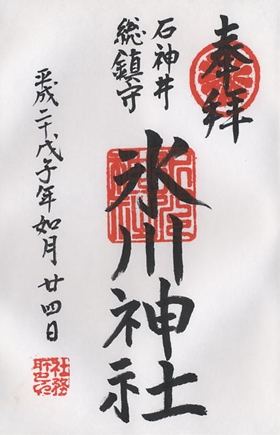 奉拝
石神井
総鎮守
氷川神社
平成二十戊子年如月廿四日
社務